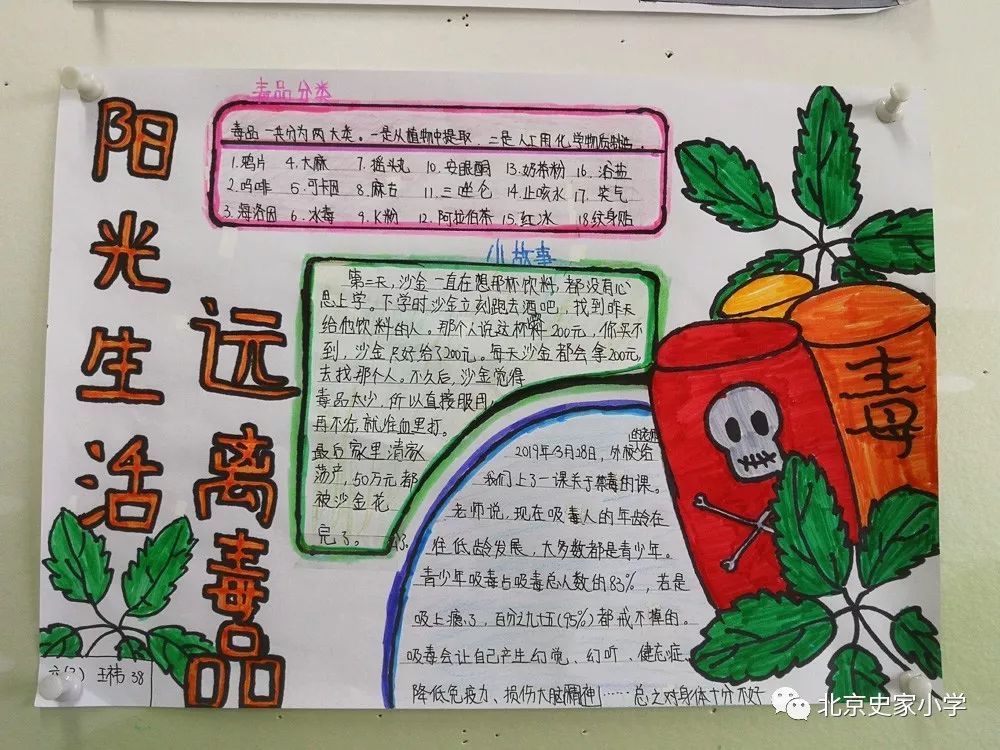 阳光生活
远离毒品
毒品分类
毒品一共分为两大类。一是从植物中提取,二是人工用化学物质制造。
1.鸦片 4.大麻 7.摇头丸 10.安眼酮 13.奶茶粉 16.浴盐
2.吗啡 5.可卡因 8.麻古 11.三唑仑 14.止咳水 17.笑气
3.海洛因 6.冰毒 9.K粉 12.阿拉伯茶 15.红冰 18.纹身贴
小故事
第二天,沙金一直在想那杯饮料,都没有心
思上学。下学时沙金立刻跑去酒吧,找到昨天
给他饮料的人。那个人说这杯饮料200元,你买不
到,沙金只好给了200元。每天沙金都会拿200元
去找那个人。不久后,沙金觉得
毒品太少,所以直接服用,
再不济就往血里打。
最后家里清家
荡产,50万元都
被沙金花
完了。
的老师
2019年3月28日,外校给
我们上了一课关于禁毒的课。
老师说,现在吸毒人的年龄在
往低龄发展,大多数都是青少年。
青少年吸毒占吸毒总人数的83%,若是
吸上瘾了,百分之九十五(95%)都戒不掉的。
吸毒会让自己产生幻觉、幻听、健忘症、
降低免疫力、损伤大脑精神……总之对身体十分不好
毒
王祎 38
北京史家小学